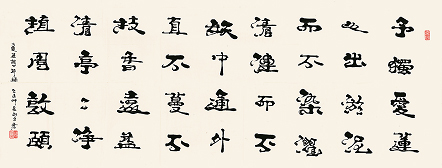 予獨愛蓮
之出淤泥
而不染濯
清漣而不
妖中通外
直不蔓不
枝香遠益
清亭〻淨
植周敦頤